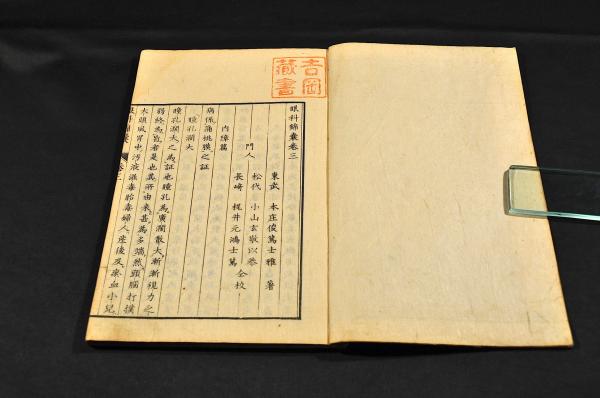 吉岡
藏書
眼科錦囊卷三
東武 本庄俊篤士雅 著
門人
松代 小山玄敬以恭
長崎 梶井元鴻士篤 仝校
內障篇
病係蒲桃膜之証
瞳孔濶大
瞳孔濶大之為証也瞳孔為廣濶散大漸漸視力乏
弱終為盲者是也其所由來甚為多端然頭腦打撲
木頭風胃中汚液黴毒胎毒婦人產後及衆血小兒